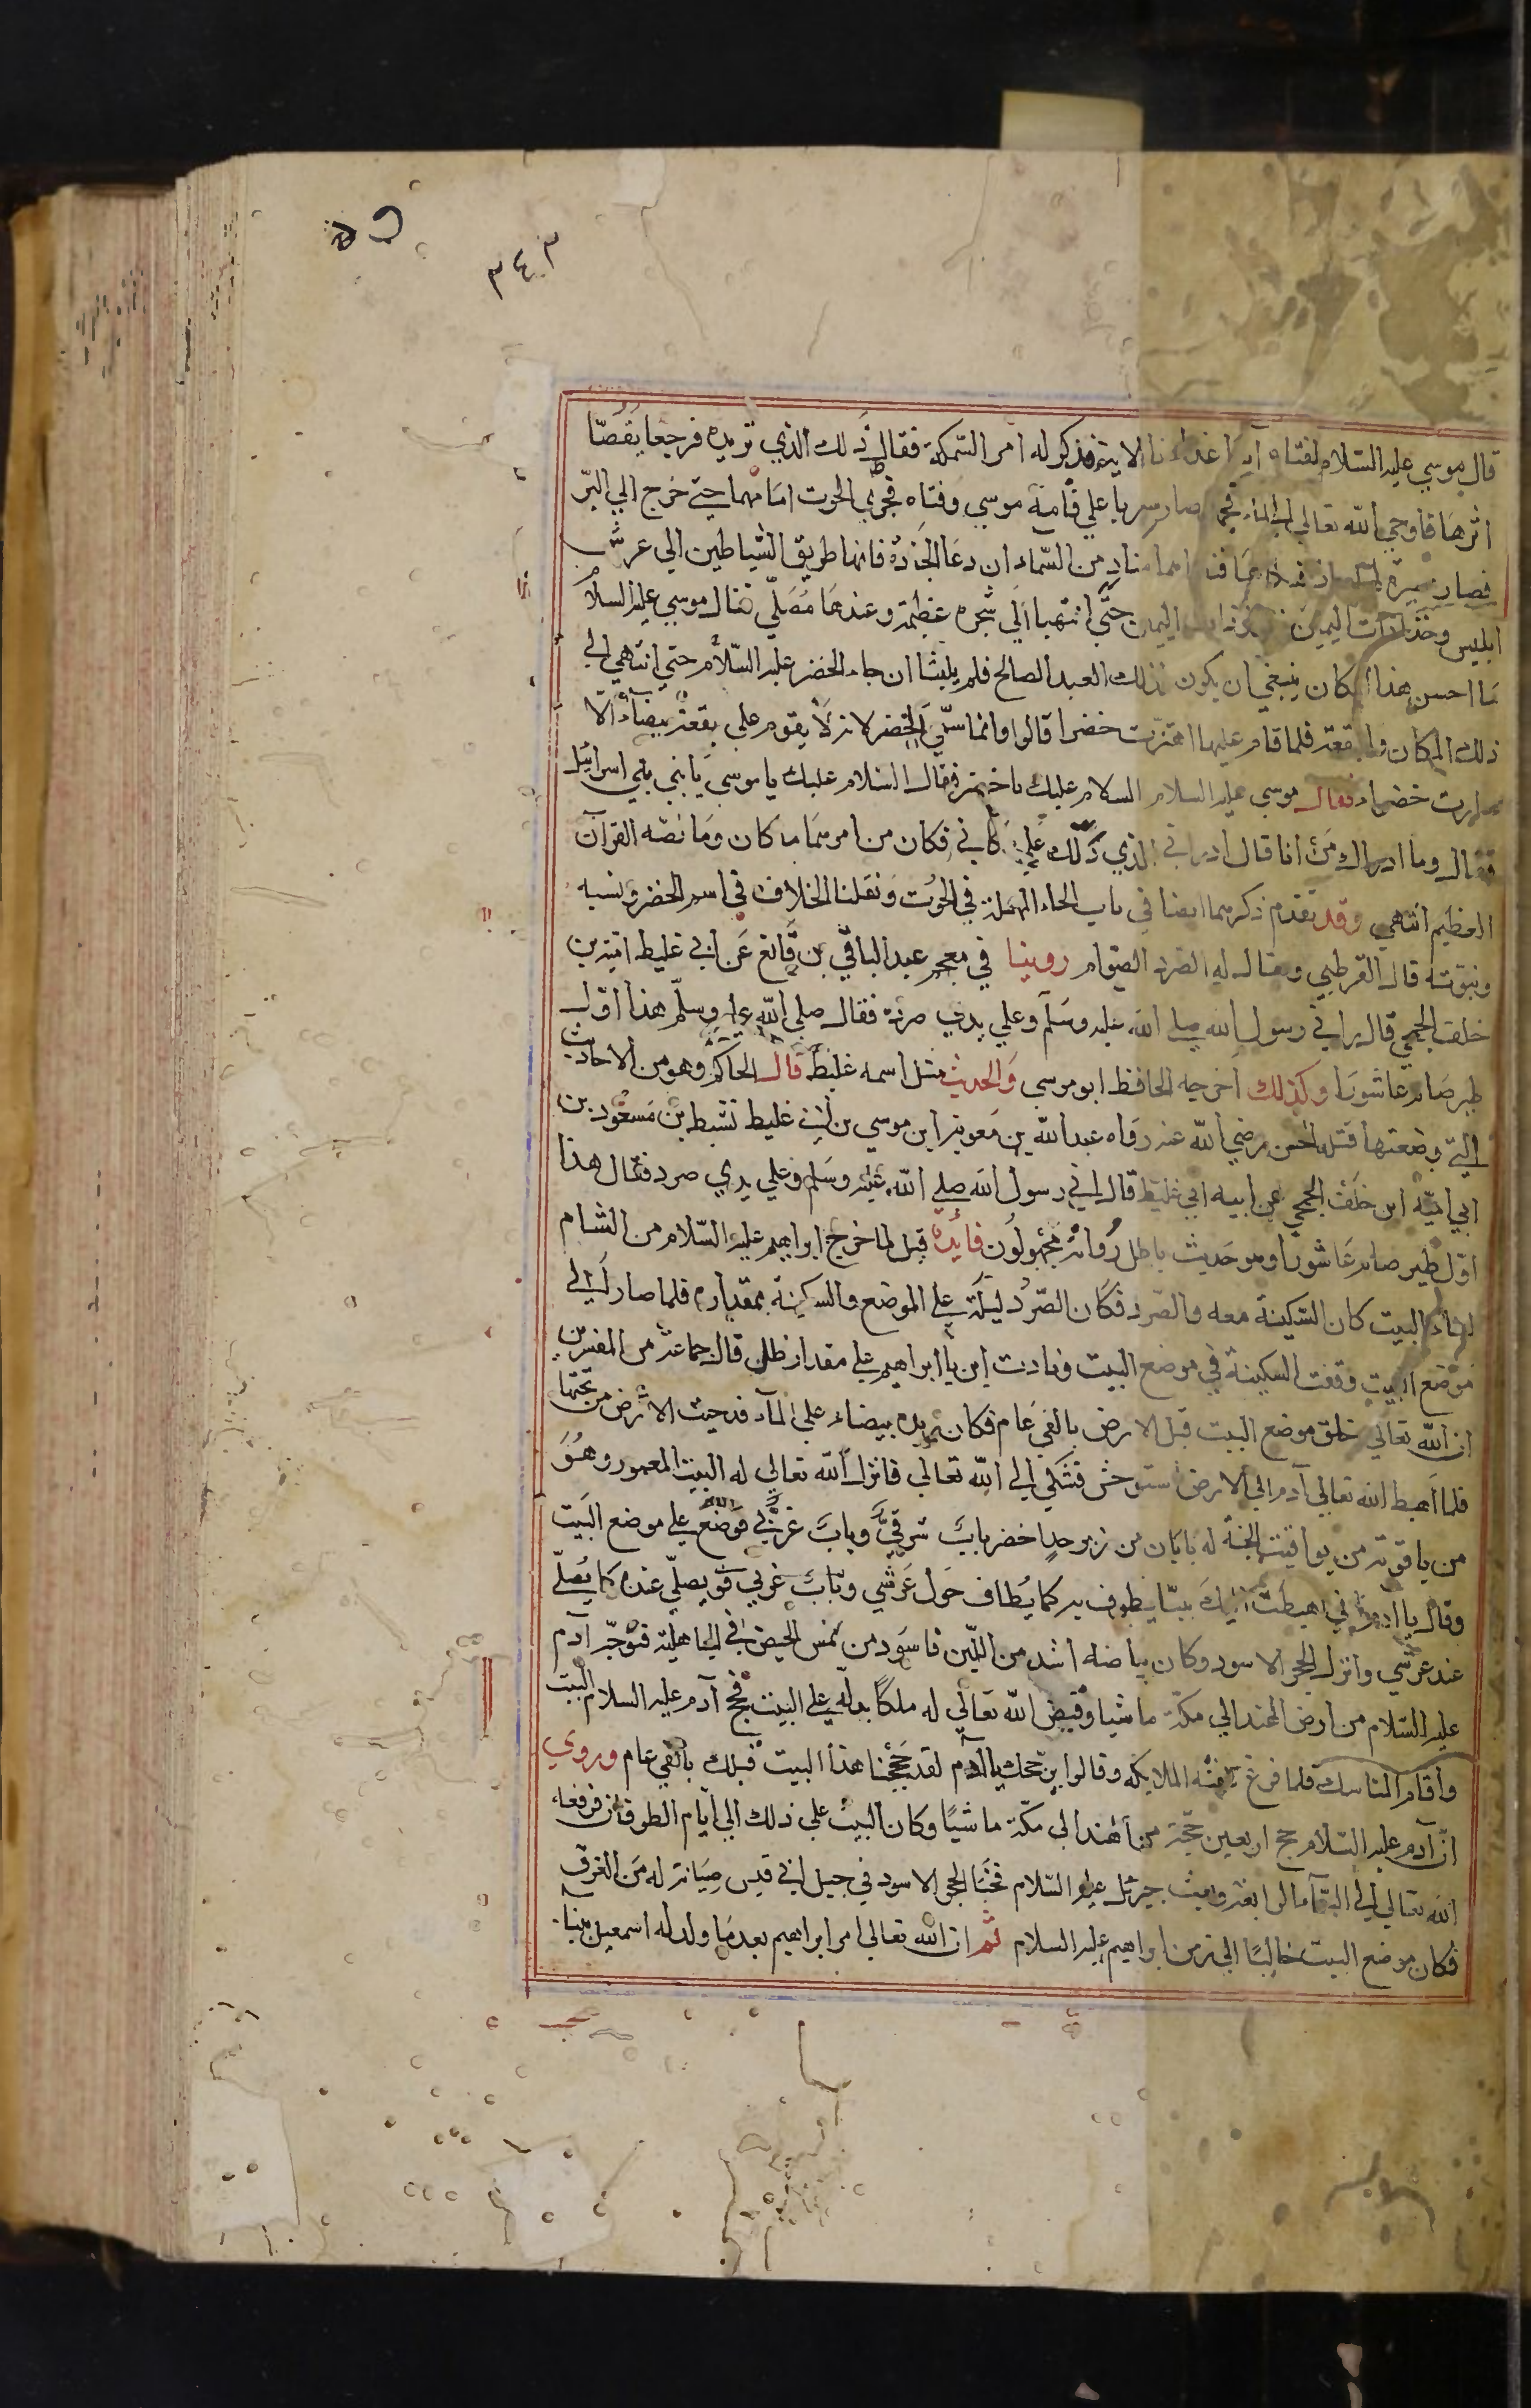 ٣٤٣
قال موسي عليه السلام لفتاه آتنا غداءنا الاية فذكر له امر السمكة فقال ذلك الذي تريده فرجعا يقصا
اثرهما فاوحي الله تعالي الي الماء فجمد فصار سربا علي قامة موسي وفتاه فجري الحوت امامهما حتي خرج الي البر
فصار منادٍ من السماء ان دعا الجادة فانها طريق الشياطين الي عرش
ابليس وخذا ذات اليمين ذات اليمين حتي انتهيا الي شجرة عظيمة وعندها مصلّي فقال موسي عليه السلام
ما احسن هذا المكان ينبغي ان يكون لذلك العبد الصالح فلم يلبثا ان جاء الخضر عليه السلام حتي انتهي الي
ذلك المكان والبقعة فلما قام عليها اهتزت خضرا قالوا وانما سمّي الخضر لانه لا يقوم علي بقعة بيضاء الا
صارت خضراء فقال موسي عليه السلام السلام عليك يا خضر فقال السلام عليك يا موسي يا نبي بني اسرائيل
فقال وما ادراك من انا قال ادراني الذي دلّك علي مكاني فكان من امرهما ما كان وما نصّه القرآن
العظيم انتهي وقد تقدم ذكرهما ايضا في باب الحاء المهملة في الحوت ونقلنا الخلاف في اسم الخضر ونسبه
ونبوته قال القرطبي ويقال له الصرد الصوام روينا في معجم عبد الباقي بن قانع عن ابي غليط امية بن
خلف الجمحي قال راني رسول الله صلي الله عليه وسلم وعلي يدي صردة فقال صلي الله عليه وسلم هذا اول
طير صام عاشورا وكذلك اخرجه الحافظ ابو موسي والحديث مثل اسمه غليظ قال الحاكم وهو من الاحاديث
التي وضعتها قتلة الحسين رضي الله عنه رواه عبد الله بن معوية ابن موسي بن ابي غليط نشيط بن مسعود بن
ابي امية ابن خلف الجمحي عن ابيه ابي غليظ قال راني رسول الله صلي الله عليه وسلم وعلي يدي صرد فقال هذا
اول طير صام عاشورا وهو حديث باطل رواته مجهولون فائده قيل لما خرج ابراهيم عليه السلام من الشام
لبناء البيت كان السكينة معه والصرد فكان الصرد ليلة علي الموضع والسكينة بمقداره فلما صار الي
موضع البيت وقفت السكينة في موضع البيت ونادت ابن يا ابراهيم علي مقدار ظلي قال جماعة من المفسرين
ان الله تعالي خلق موضع البيت قبل الارض بالفي عام فكان زبدة بيضاء علي الماء فدحيت الارض من تحتها
فلما اهبط الله تعالي آدم الي الارض استوحش فشكي الي الله تعالي فانزل الله تعالي له البيت المعمور وهو
من ياقوتة من يواقيت الجنة له بابان من زبرجد اخضر باب شرقي وباب غربي فوضع علي موضع البيت
وقال يا ادم اني اهبطت اليك بيتا يطوف به كما يطاف حول عرشي وباب غربي ويصلّي عنده كما يصلّي
عند عرشي وانزل الحجر الاسود وكان بياضه اشد من اللبن فاسود من لمس الحيض في الجاهلية فتوجه آدم
عليه السلام من ارض الهند الي مكة ماشيا وقيض الله تعالي له ملكا يدله علي البيت فحج آدم عليه السلام البيت
واقام المناسك فلما فرغ تلقته الملائكة وقالوا بر حجك يا آدم لقد حججنا هذا البيت قبلك بالفي عام وروي
ان آدم عليه السلام حج اربعين حجة من الهند الي مكة ماشيا وكان البيت علي ذلك الي ايام الطوفان فرفعه
الله تعالي الي السماء الرابعة وبعث جبرئل عليه السلام فخبا الحجر الاسود في جبل ابي قبيس صيانة له من الغرق
فكان موضع البيت خاليا الي زمن ابراهيم عليه السلام ثم ان الله تعالي امر ابراهيم بعد ما ولد له اسمعيل ببنا